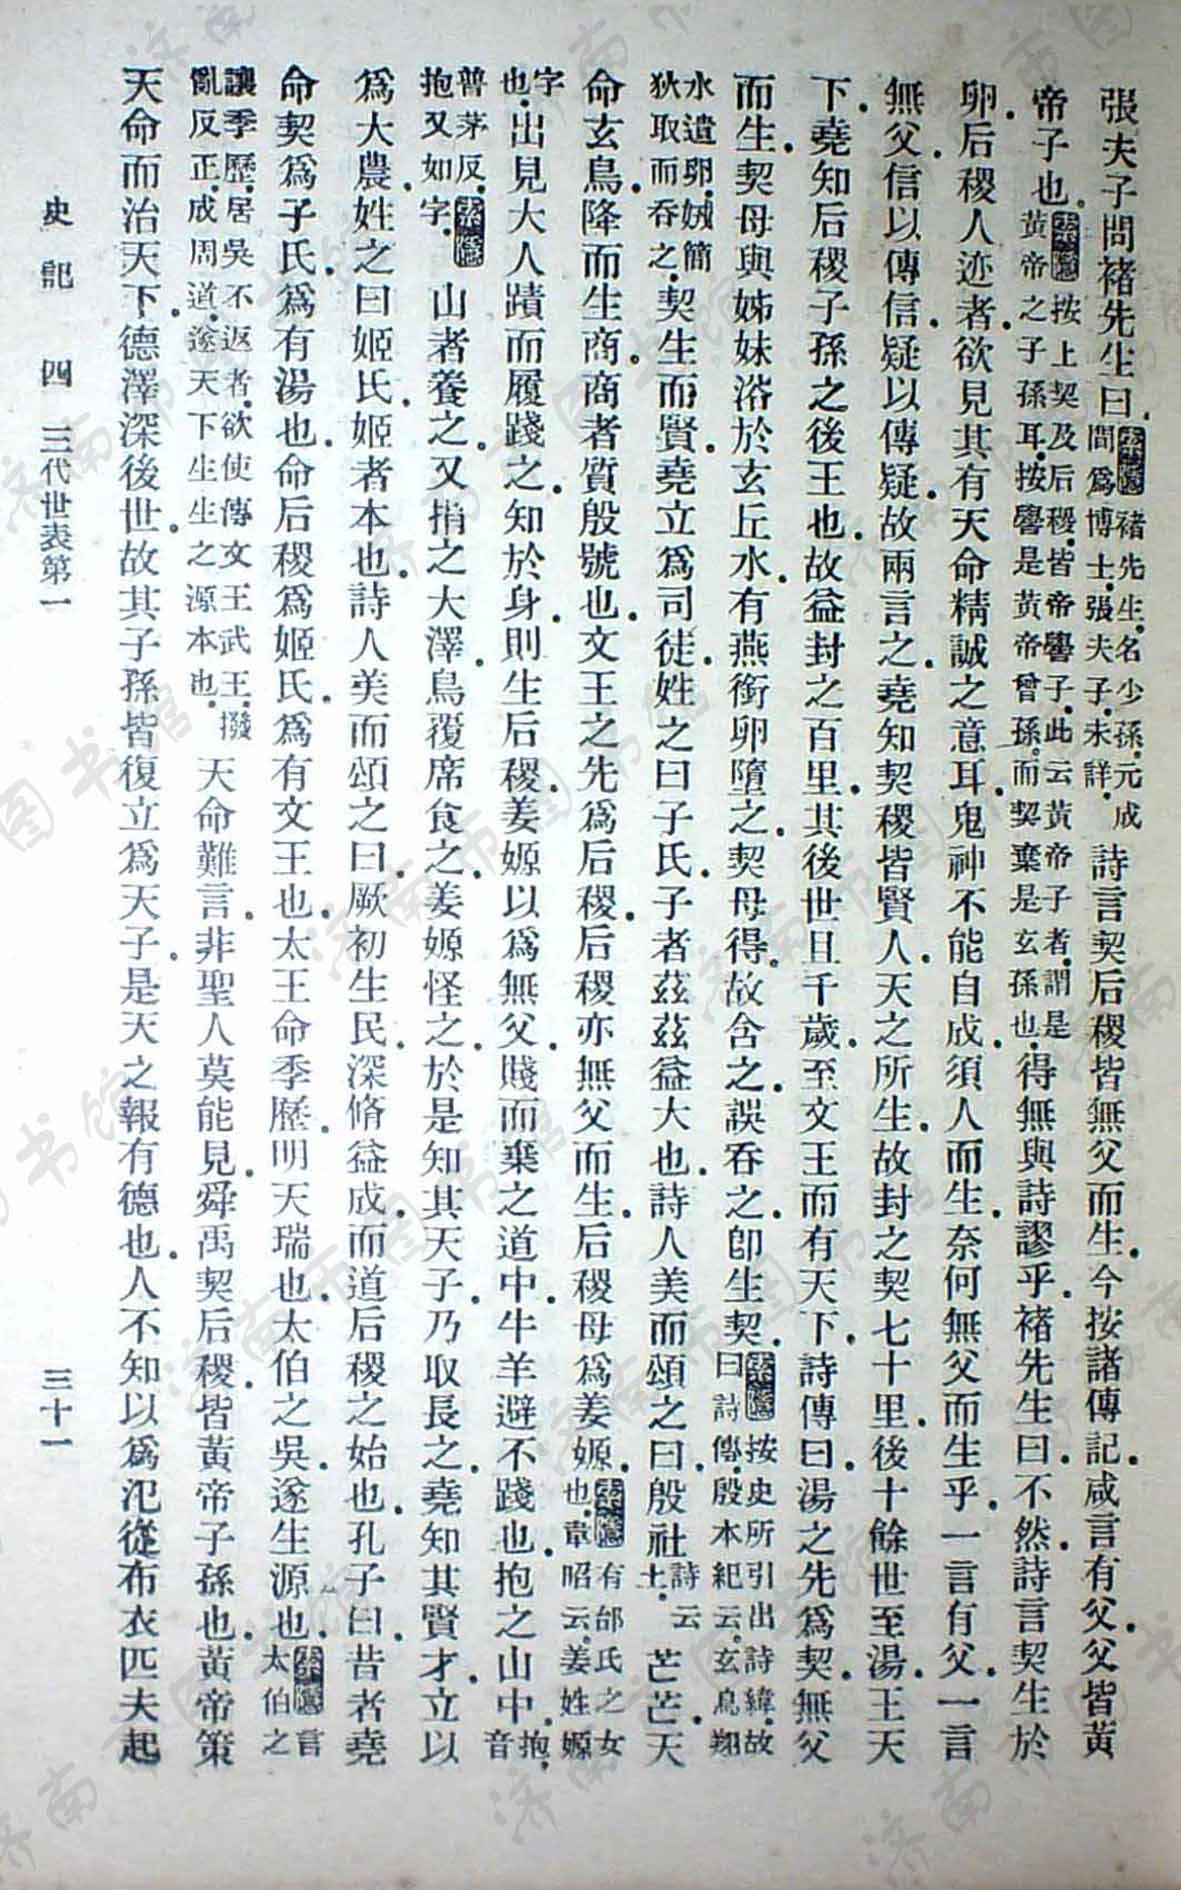 張夫子問褚先生曰。索隱褚先生。名少孫。元成間爲博士。張夫子。未詳。詩言契后稷皆無父而生。今按諸傳記。咸言有父。父皆黃
帝子也。索隱按上契及后稷。皆帝嚳子。此云黃帝子者。謂是黃帝之子孫耳。按嚳是黃帝曾孫。而契棄是玄孫也。得無與詩謬乎。褚先生曰。不然。詩言契生於
卵。后稷人迹者。欲見其有天命精誠之意耳。鬼神不能自成。須人而生。奈何無父而生乎。一言有父。一言
無父。信以傳信。疑以傳疑。故兩言之。堯知契稷皆賢人。天之所生。故封之契七十里。後十餘世至湯。王天
下。堯知后稷子孫之後王也。故益封之百里。其後世且千歲。至文王而有天下。詩傳曰。湯之先爲契。無父
而生。契母與姊妹浴於玄丘水。有燕銜卵墮之。契母得。故含之。誤吞之。卽生契。索隱按史所引出詩緯。故曰詩傳。殷本紀云。玄鳥翔
水遺卵。娀簡狄取而吞之。契生而賢。堯立爲司徒。姓之曰子氏。子者茲。茲益大也。詩人美而頌之曰。殷社詩云土。芒芒。天
命玄鳥。降而生商。商者質。殷號也。文王之先爲后稷。后稷亦無父而生。后稷母爲姜嫄。索隱有邰氏之女也。韋昭云。姜姓嫄
字也。出見大人蹟而履踐之。知於身。則生后稷。姜嫄以爲無父。賤而棄之道中。牛羊避不踐也。抱之山中。抱。音
普茅反。抱又如字。索隱山者養之。又捐之大澤。鳥覆席食之。姜嫄怪之。於是知其天子。乃取長之。堯知其賢才。立以
爲大農。姓之曰姬氏。姬者本也。詩人美而頌之曰。厥初生民。深脩益成。而道后稷之始也。孔子曰。昔者堯
命契爲子氏。爲有湯也。命后稷爲姬氏。爲有文王也。太王命季歷。明天瑞也。太伯之吳。遂生源也。索隱言太伯之
讓季歷。居吳不返者。欲使傳文王武王。撥亂反正。成周道。遂天下生生之源本也。天命難言。非聖人莫能見。舜禹契后稷。皆黃帝子孫也。黃帝策
天命而治天下。德澤深後世。故其子孫皆復立爲天子。是天之報有德也。人不知以爲氾從布衣匹夫起
史記 四 三代世表第一 三十一
济南市图书馆